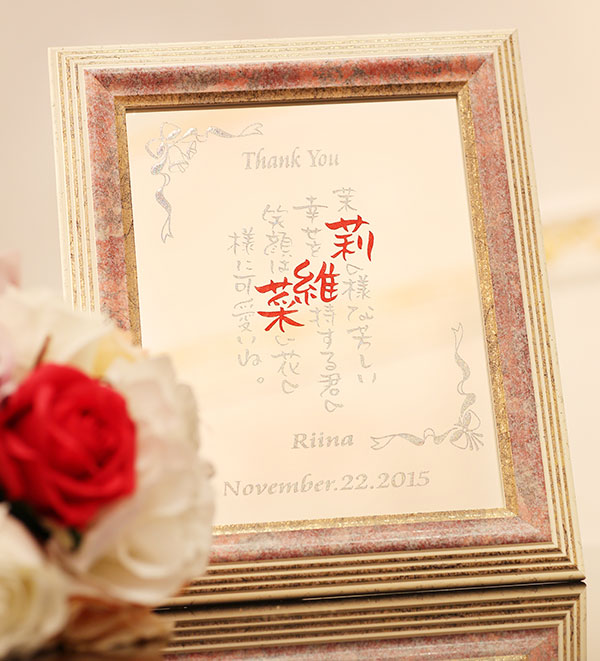 Thank You
茉莉の様な美しい
幸せを維持する君の
笑顔は菜の花の
様に可愛いね。
Riina
November.22.2015